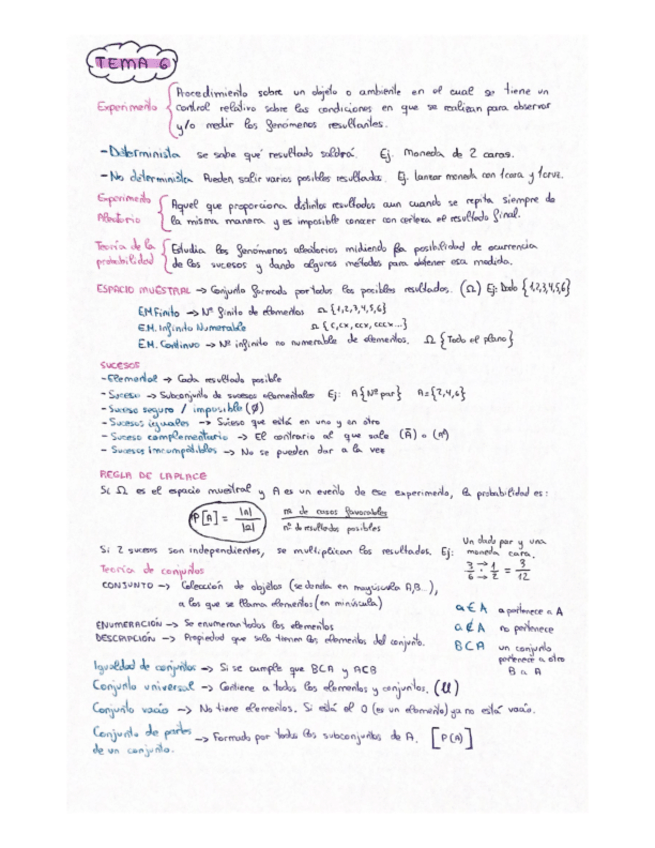 TEMA 6
Experimento { Procedimiento sobre un objeto o ambiente en el cual se tiene un
control relativo sobre las condiciones en que se realizan para observar
y/o medir los fenómenos resultantes.
- Determinista se sabe qué resultado saldrá. Ej. Moneda de 2 caras.
- No determinista Pueden salir varios posibles resultados. Ej. Lanzar moneda con 1cara y 1cruz.
Experimento Aleatorio { Aquel que proporciona distintos resultados aun cuando se repita siempre de
la misma manera y es imposible conocer con certeza el resultado final.
Teoría de la probabilidad { Estudia los fenómenos aleatorios midiendo la posibilidad de ocurrencia
de los sucesos y dando algunos métodos para obtener esa medida.
ESPACIO MUESTRAL → Conjunto formado por todos los posibles resultados. (Ω) Ej: Dado {1,2,3,4,5,6}
E.M Finito → Nº finito de elementos Ω {1,2,3,4,5,6}
E.M. Infinito Numerable Ω {C, CX, CCX, CCCX...}
E.M. Continuo → Nº infinito no numerable de elementos. Ω {Todo el plano}
SUCESOS
- Elemental → Cada resultado posible
- Suceso → Subconjunto de sucesos elementales Ej: A {Nº par} A={2,4,6}
- Suceso seguro / imposible (Ø)
- Sucesos iguales → Suceso que está en uno y en otro
- Suceso complementario → El contrario al que sale (Ā) o (Aᶜ)
- Sucesos incompatibles → No se pueden dar a la vez
REGLA DE LAPLACE
Si Ω es el espacio muestral y A es un evento de ese experimento, la probabilidad es:
P[A] = |A| / |Ω| nº de casos favorables / nº de resultados posibles
Si 2 sucesos son independientes, se multiplican los resultados. Ej: Un dado par y una moneda cara.
3/6 → 1/2 = 3/12
Teoría de conjuntos
CONJUNTO → Colección de objetos (se donda en mayúscula A,B...),
a los que se llama elementos (en minúscula)
a ∈ A a pertenece a A
ENUMERACIÓN → Se enumeran todos los elementos
a ∉ A no pertenece
DESCRIPCIÓN → Propiedad que solo tienen los elementos del conjunto.
B ⊂ A un conjunto
pertenece a otro
B a A
Igualdad de conjuntos → Si se cumple que B⊂A y A⊂B
Conjunto universal → Contiene a todos los elementos y conjuntos. (U)
Conjunto vacío → No tiene elementos. Si está el 0 (es un elemento) ya no está vacío.
Conjunto de partes → Formado por todos los subconjuntos de A. [P(A)]
de un conjunto.